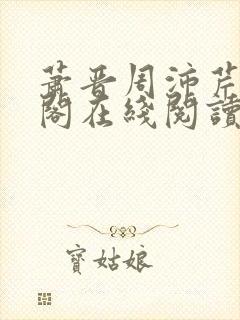 萧晋周沛芹
阁在线阅读
寳姑娘